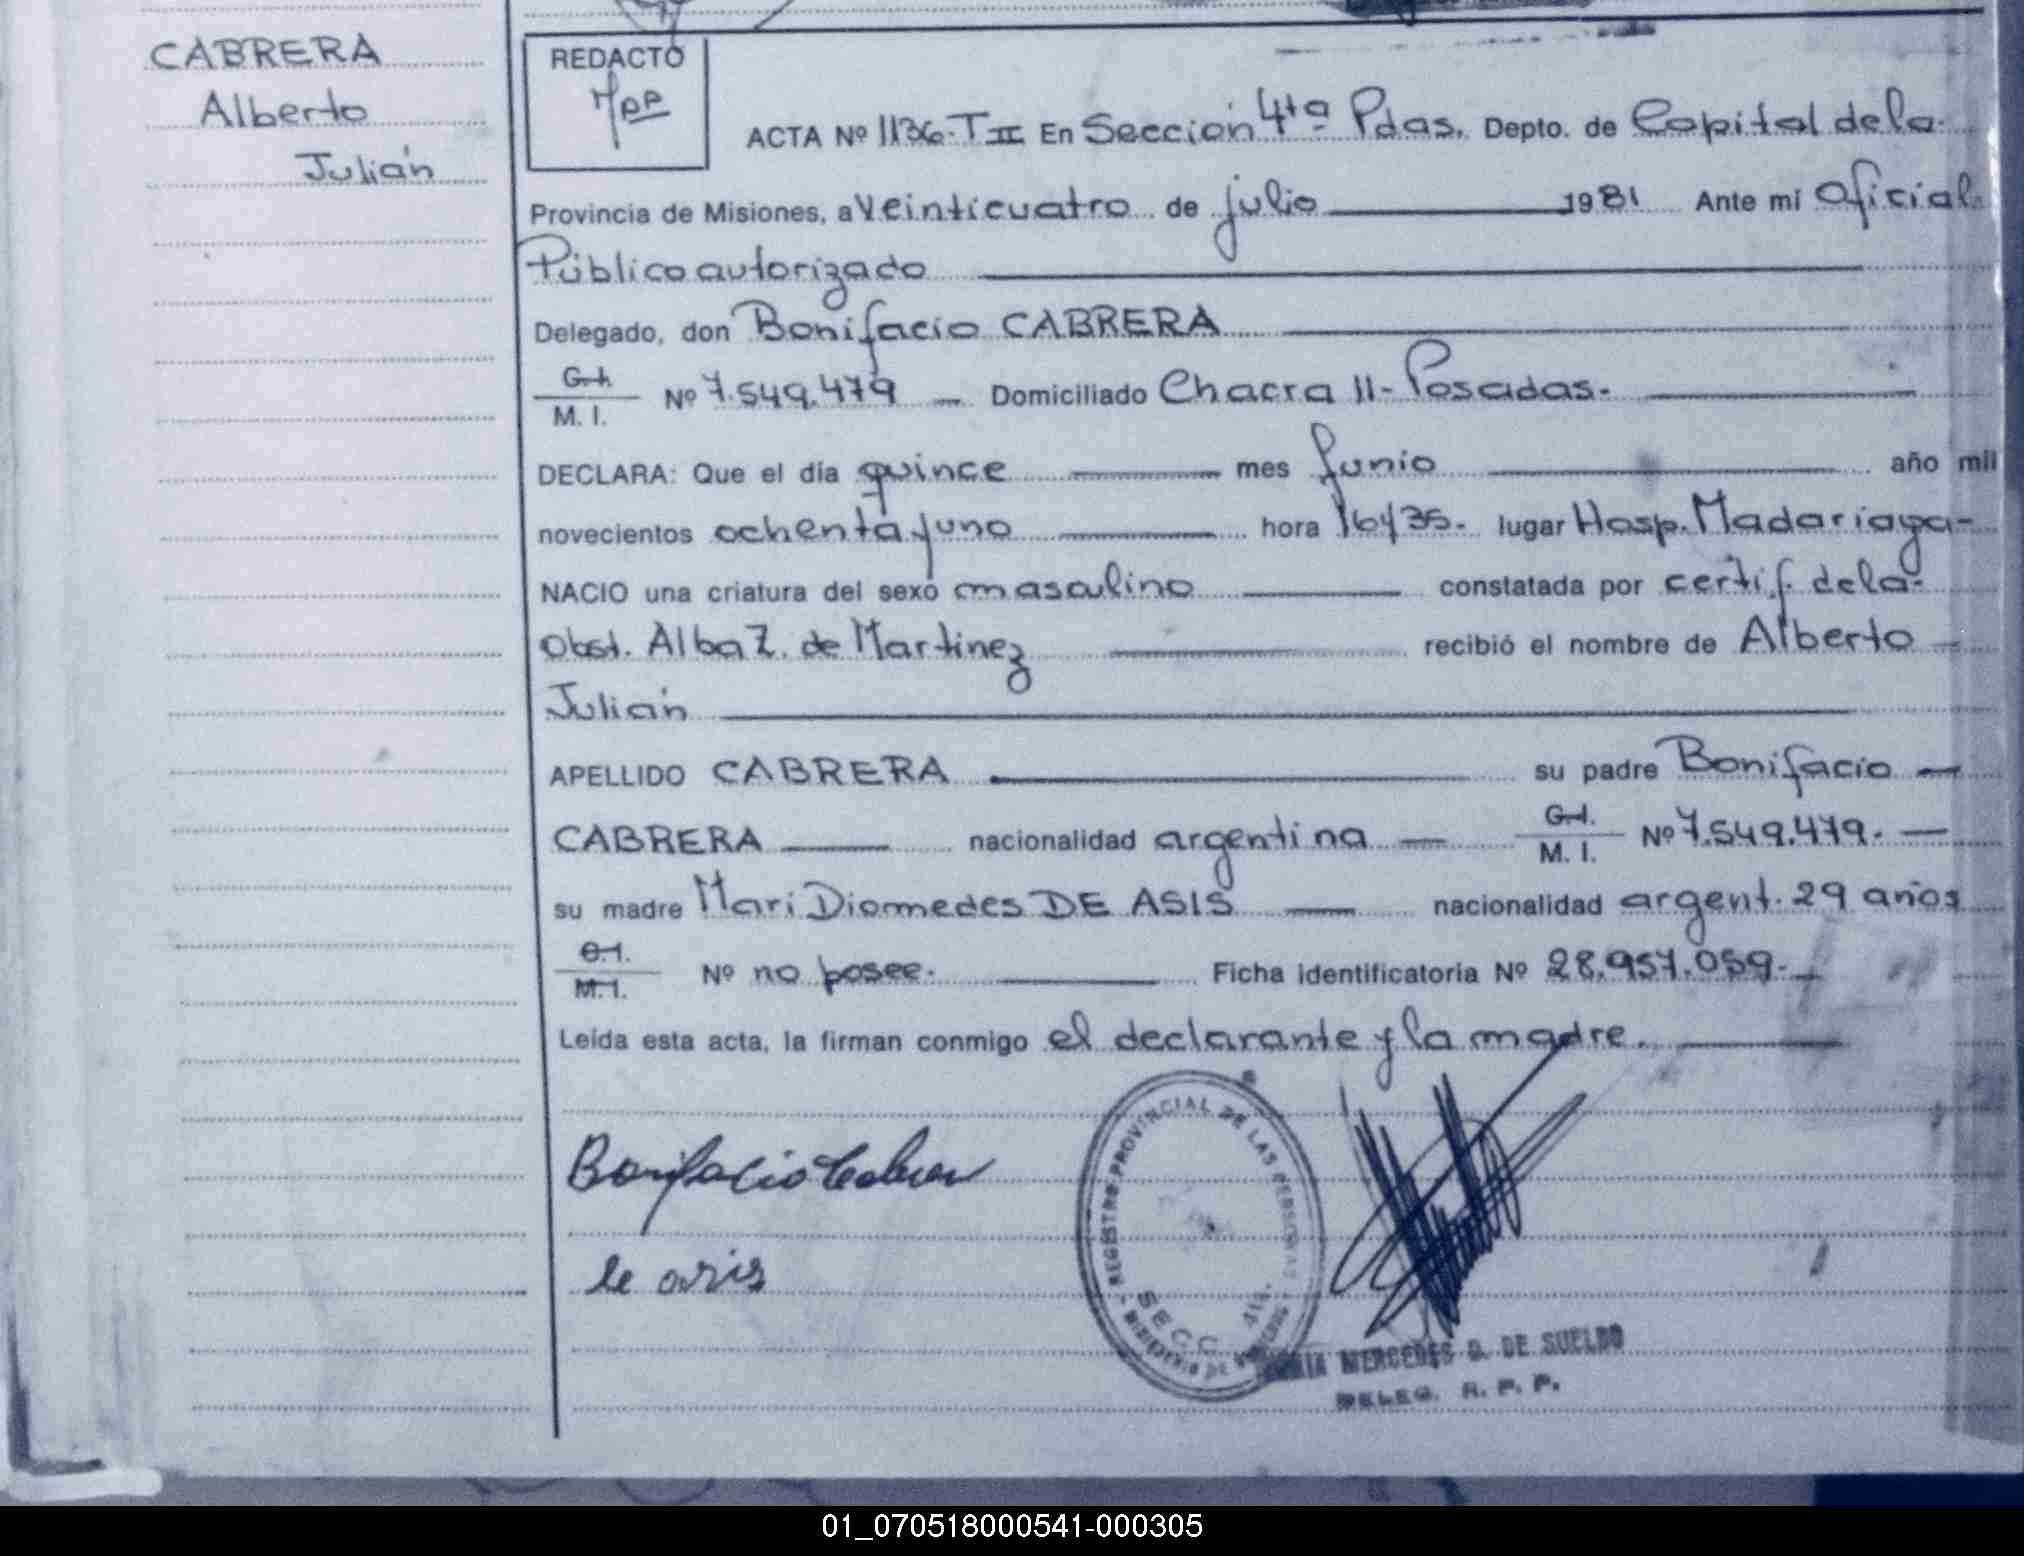 CABRERA
Alberto
Julián
REDACTÓ
ACTA Nº 1136-T II En Sección 4ta Pdas. Depto. de Capital de la
Provincia de Misiones, a veinticuatro de julio 1981 Ante mí Oficial
Público autorizado
Delegado, don Bonifacio CABRERA
G.I.
M. I. Nº 7.549.479 — Domiciliado Chacra 11-Posadas.
DECLARA: Que el día quince mes Junio año mil
novecientos ochenta y uno hora 16y35- lugar Hosp. Madariaga-
NACIO una criatura del sexo masculino constatada por certif. de la
Obst. Alba Z. de Martinez recibió el nombre de Alberto
Julián
APELLIDO CABRERA su padre Bonifacio
CABRERA nacionalidad argentina G.I. M. I. Nº 7.549.479.
su madre Mari Diomedes DE ASIS nacionalidad argent. 29 años
G.I. M.I. Nº no posee. Ficha identificatoria Nº 28.957.059-
Leída esta acta, la firman conmigo el declarante y la madre.
Bonifacio Cabrera
de asis
REGISTRO PROVINCIAL DE LAS PERSONAS
MINISTERIO DE
SECC. 4ta.
MERCEDES D. DE SUELDO
DELEG. R. P. P.
01_070518000541-000305